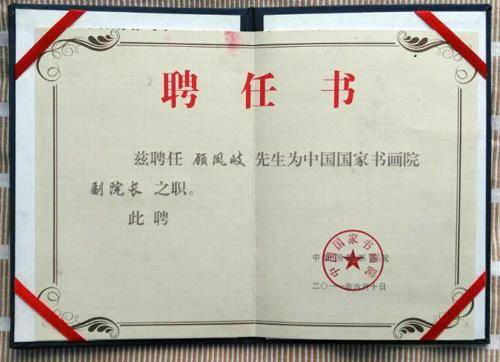 聘任书
兹聘任 顾凤岐 先生为中国国家书画院
副院长 之职。
此聘
中国国家书画院
中国国家书画院
二〇一一年六月十日